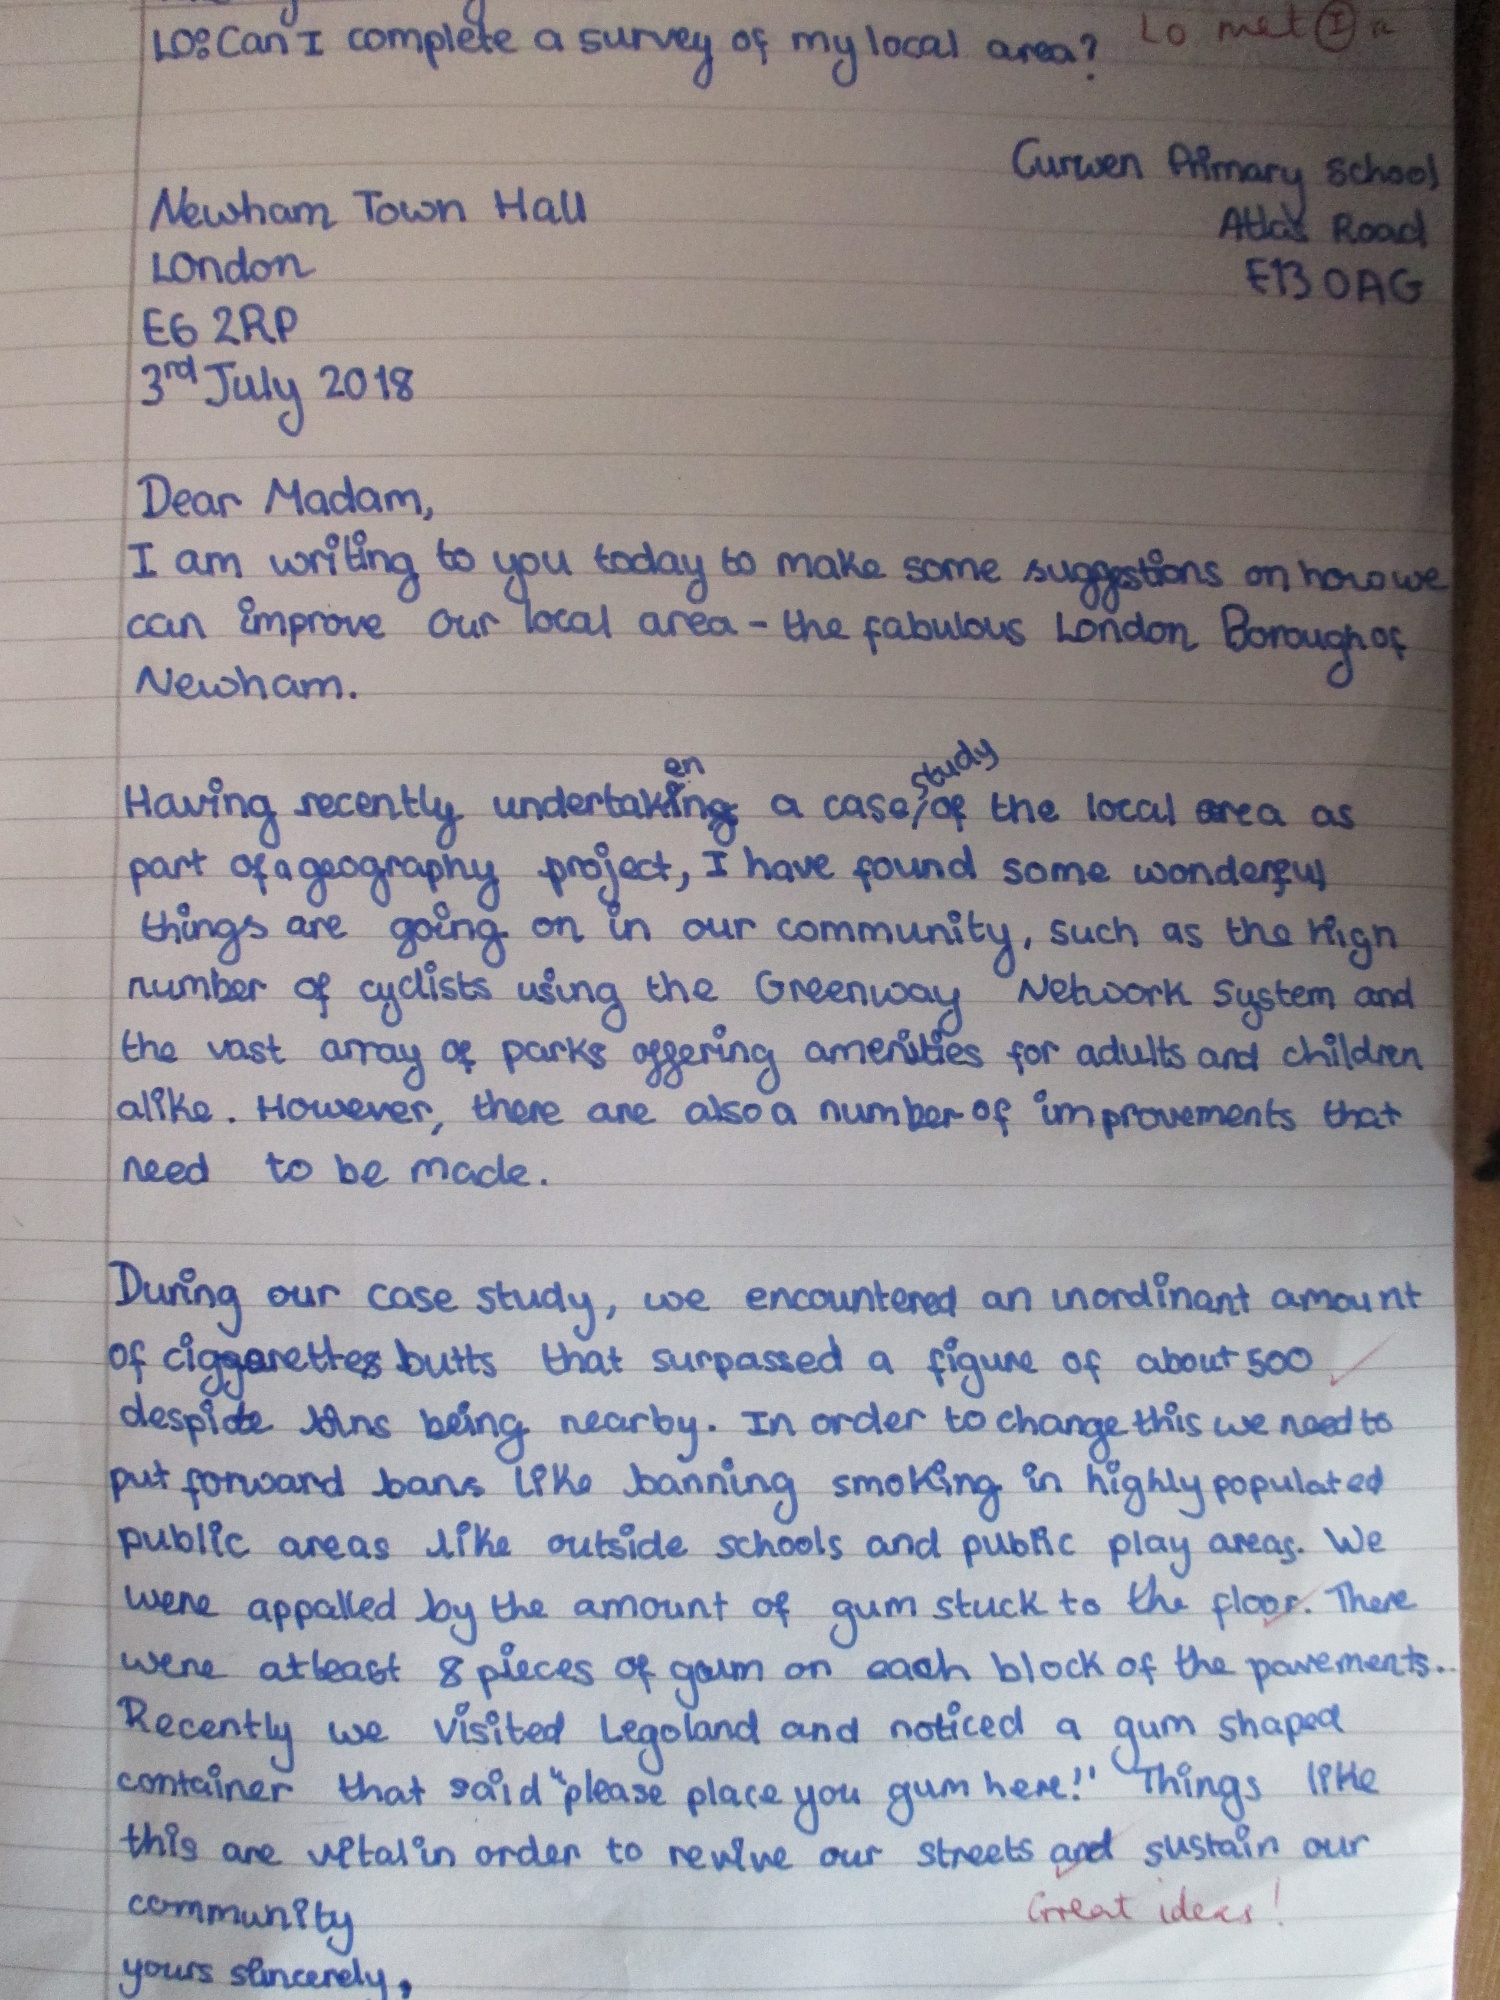 LO: Can I complete a survey of my local area? LO met I
Curwen Primary School
Newham Town Hall
Atlas Road
London
E13 0AG
E6 2RP
3rd July 2018
Dear Madam,
I am writing to you today to make some suggestions on how we
can improve our local area - the fabulous London Borough of
Newham.
Having recently undertaken a case study of the local area as
part of a geography project, I have found some wonderful
things are going on in our community, such as the high
number of cyclists using the Greenway Network System and
the vast array of parks offering amenities for adults and children
alike. However, there are also a number of improvements that
need to be made.
During our case study, we encountered an inordinant amount
of ciggarettes butts that surpassed a figure of about 500
despite bins being nearby. In order to change this we need to
put forward bans like banning smoking in highly populated
public areas like outside schools and public play areas. We
were appalled by the amount of gum stuck to the floor. There
were atleast 8 pieces of gum on each block of the pavements.
Recently we visited Legoland and noticed a gum shaped
container that said "please place you gum here!" Things like
this are vital in order to revive our streets and sustain our
community
Great ideas!
yours sincerely,